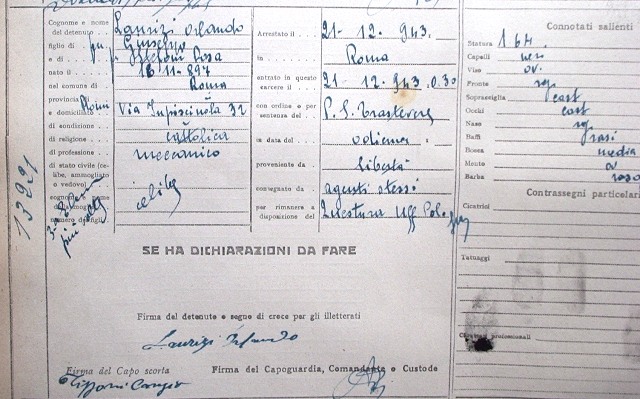 Cognome e nome del detenuto Laurizi Orlando
figlio di fu Giuseppe
e di
nato il 16-11-897
nel comune di Roma
provincia di Roma
e domiciliato Via Inpiscinula 32
di condizione
di religione cattolica
di professione meccanico
di stato civile (celibe, ammogliato o vedovo) celibe
cognome e nome
numero dei figli
13291
Arrestato il 21-12-943.
in Roma
entrato in questo carcere il 21-12-943. 0.30
con ordine e per sentenza del P. S. Trastevere
in data del odierna
proveniente da libertà
consegnato da agenti stessi
per rimanere a disposizione del Questura Uff Polo
Connotati salienti
Statura 1 64.
Capelli neri
Viso ov.
Fronte reg.
Sopracciglia cast
Occhi cast
Naso reg.
Baffi rasi
Bocca media
Mento ov
Barba rasa
Contrassegni particolari
Cicatrici
Tatuaggi
professionali
SE HA DICHIARAZIONI DA FARE
Firma del detenuto e segno di croce per gli illetterati
Laurizi Orlando
Firma del Capo scorta
Firma del Capoguardia, Comandante e Custode